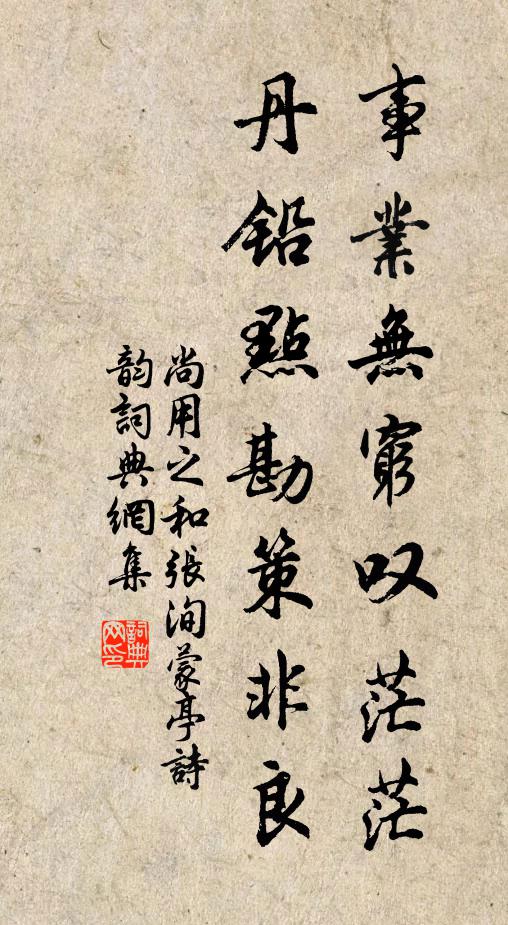 事業無窮叹茫茫
丹鉛點勘策非良
尚用之和張洵蒙亭詩
韵詞典網集
詞典網印